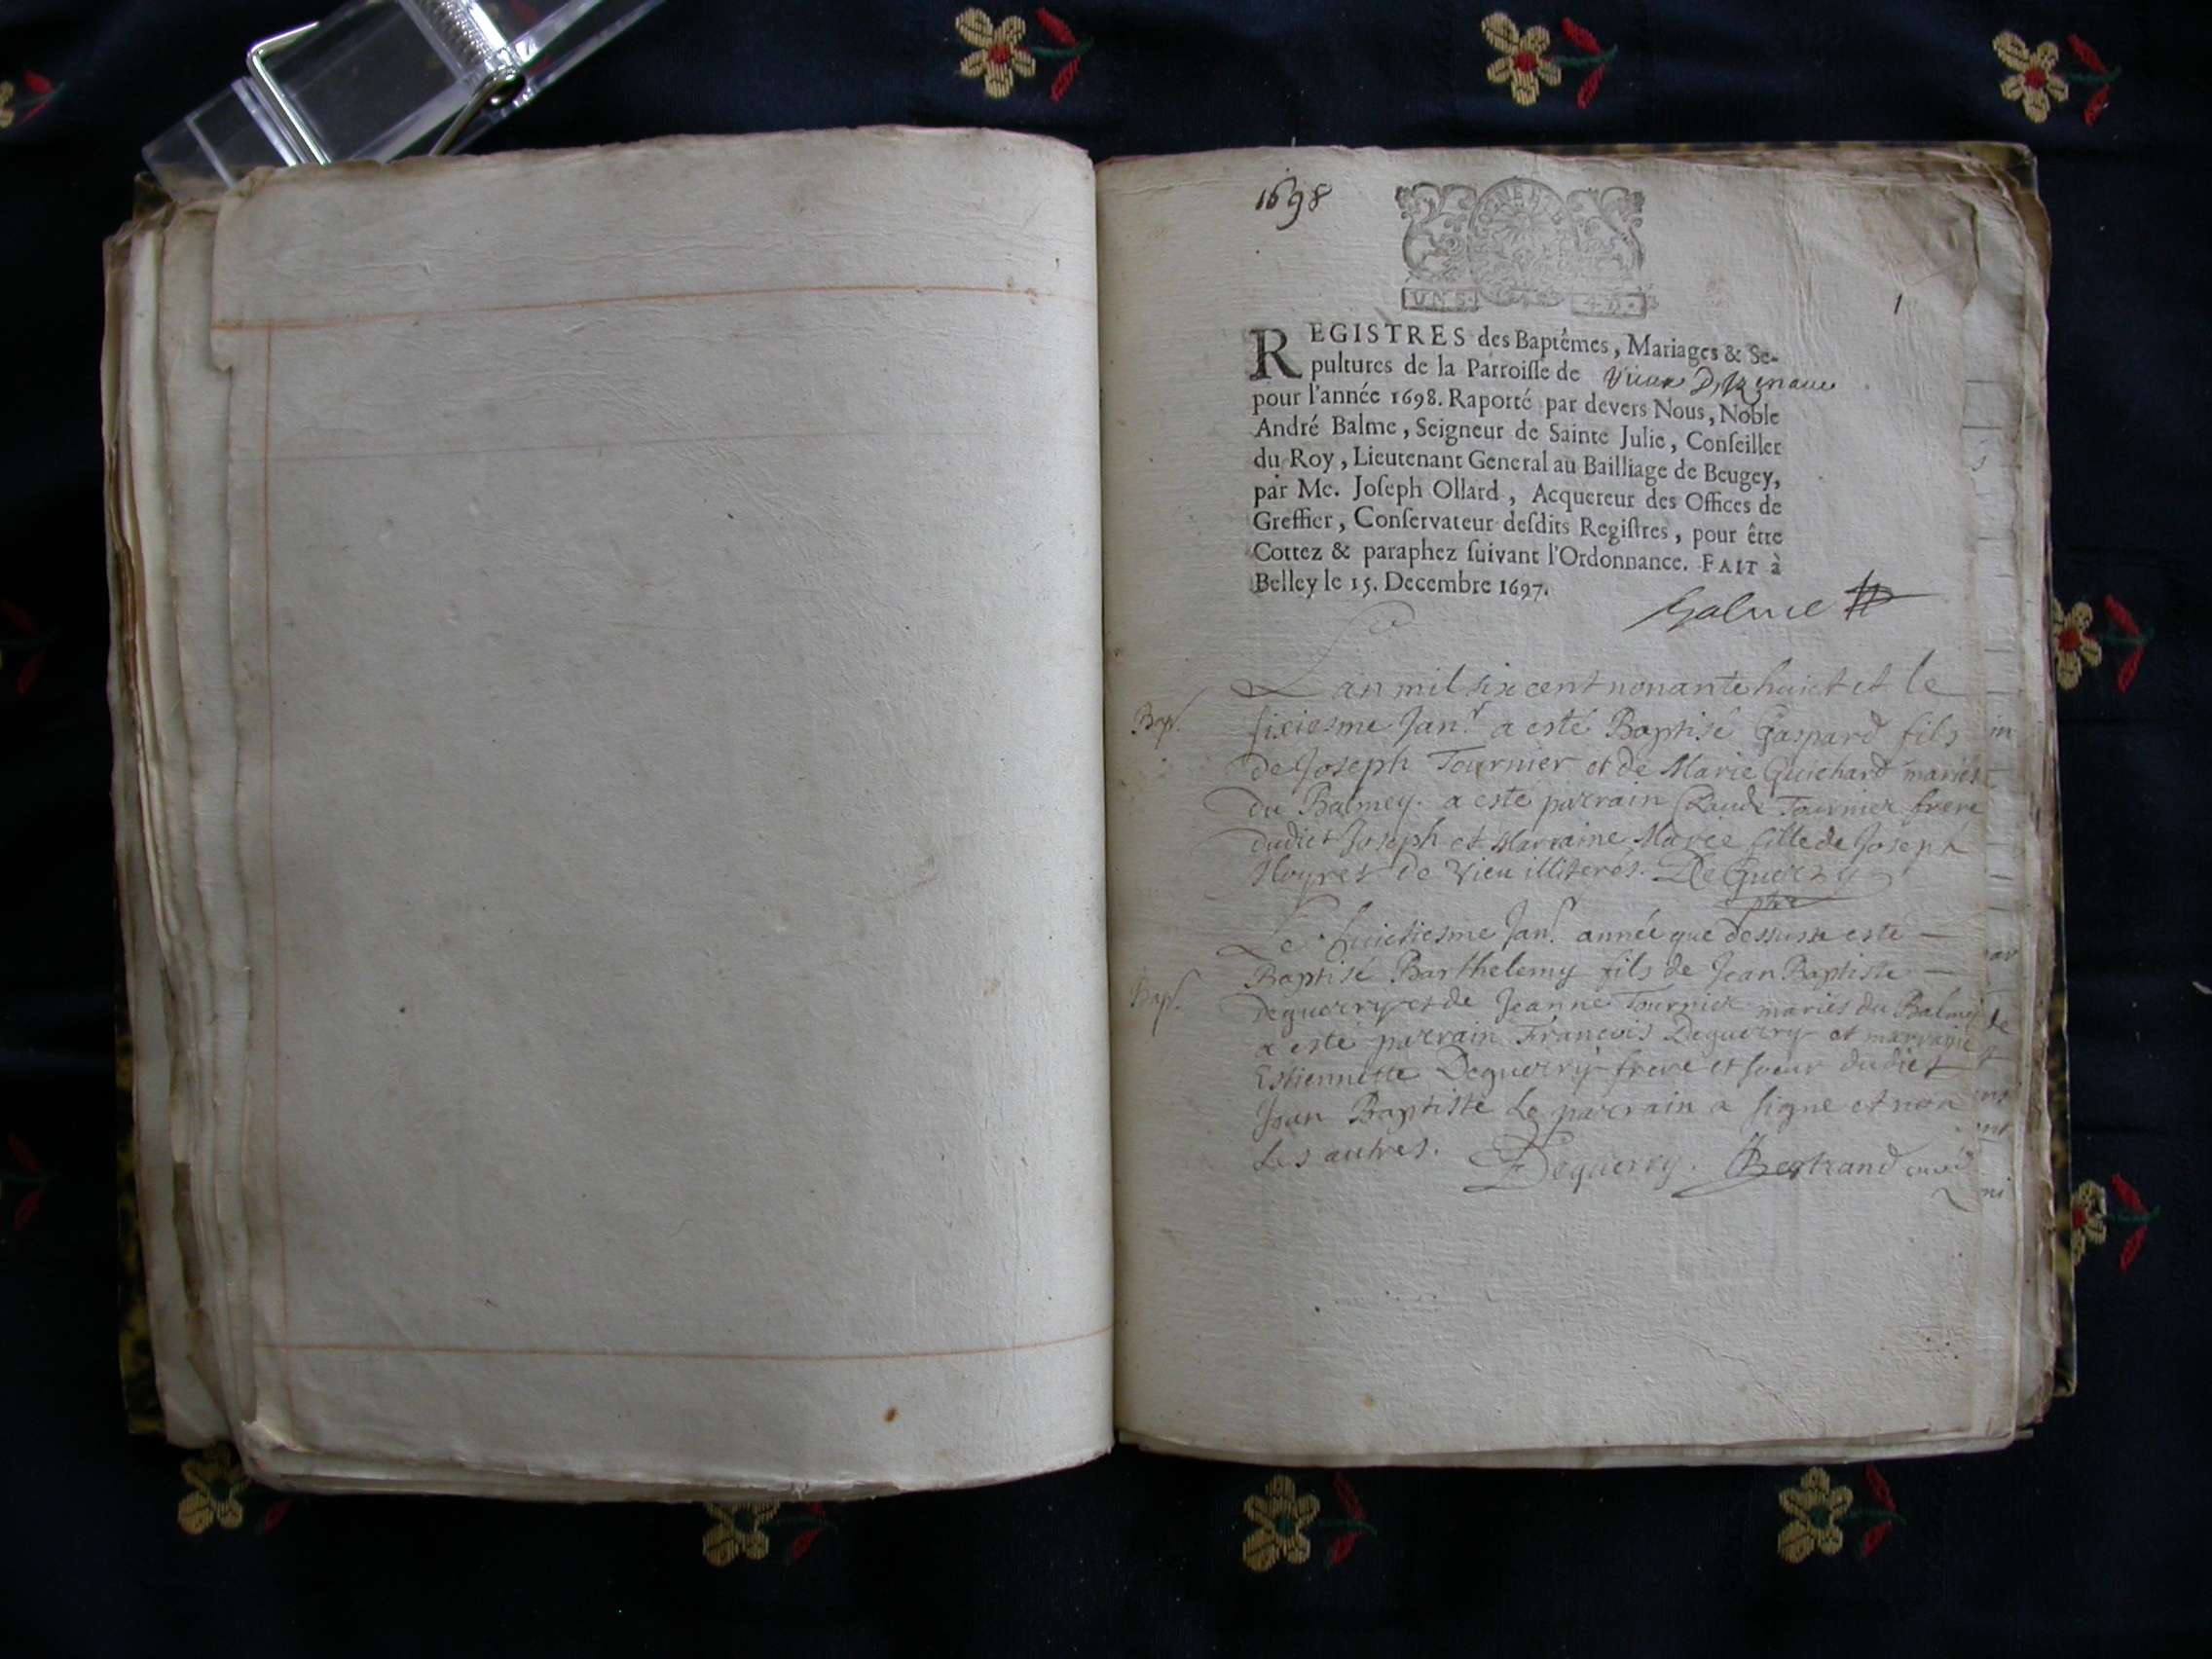 1698
UN S. 4 D.
1
REGISTRES des Baptêmes, Mariages & Se-
pultures de la Parroisse de Vieux D'Izenave
pour l'année 1698. Raporté par devers Nous, Noble
André Balme, Seigneur de Sainte Julie, Conseiller
du Roy, Lieutenant General au Bailliage de Beugey,
par Me. Joseph Ollard, Acquereur des Offices de
Greffier, Conservateur desdits Registres, pour être
Cottez & paraphez suivant l'Ordonnance. FAIT à
Belley le 15. Decembre 1697.
Balme
L'an mil six cent nonante huict et le
Bap.
sixiesme Janr. a esté Baptisé Gaspard fils
de Joseph Tournier et de Marie Guichard mariés
du Balmey. a esté parrain Claude Tournier frere
dudict Joseph et Marraine Marie fille de Joseph
de Vieu illiterés. DeGuerry
ptre
Le huictiesme Janr. année que dessus a esté
Baptisé Barthelemy fils de Jean Baptiste
Bap.
Deguerry et de Jeanne Tournier mariés du Balmey
a esté parrain Francois Deguerry et marraine
Estiennette Deguerry frere et soeur dudict
Jean Baptiste Le parrain a signé et non
Les autres. Deguerry. Bertrand curé